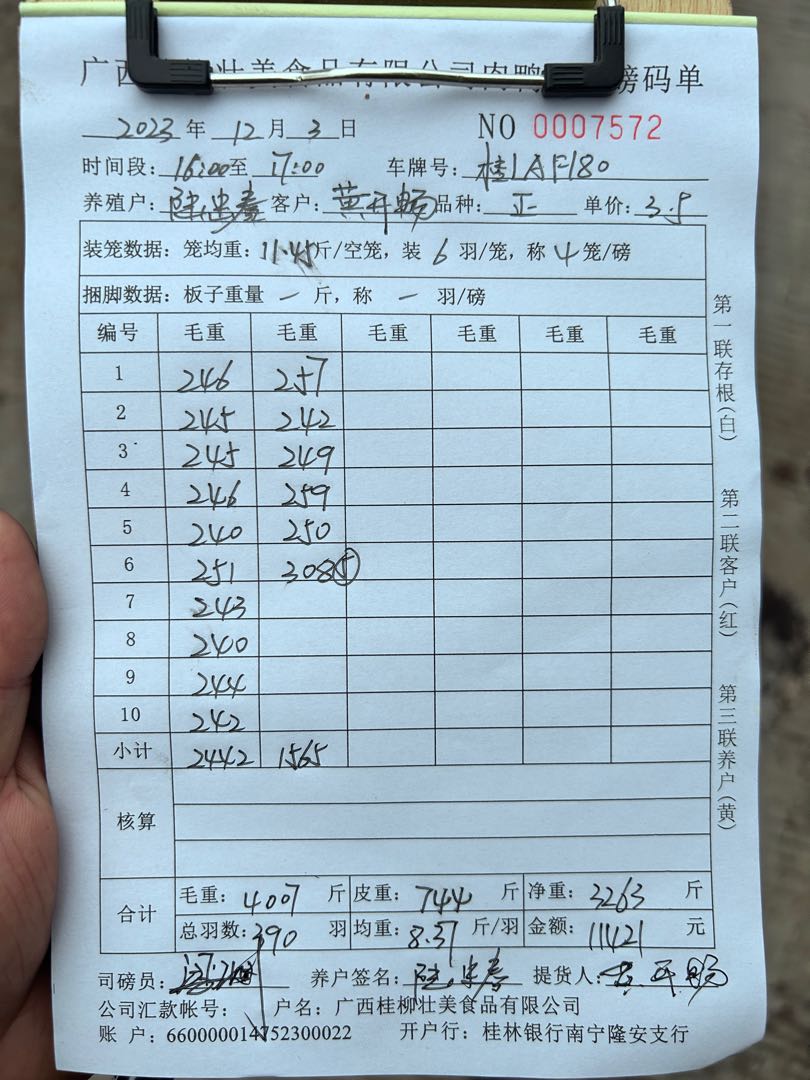 广西 壮美食品有限公司肉鸭 磅码单
2023年 12月 3日 NO 0007572
时间段: 16:00至 17:00 车牌号: 桂1AF180
养殖户: 陆忠春 客户: 黄开畅 品种: 正 单价: 3.5
装笼数据: 笼均重: 11.45斤/空笼, 装 6 羽/笼, 称 4 笼/磅
捆脚数据: 板子重量 一 斤, 称 一 羽/磅
编号 毛重 毛重 毛重 毛重 毛重 毛重
1 246 257
2 245 242
3 245 249
4 246 259
5 240 250
6 251 308⑤
7 243
8 240
9 244
10 242
小计 2442 1565
核算
合计 毛重: 4007 斤 皮重: 744 斤 净重: 3263 斤
总羽数: 390 羽 均重: 8.37 斤/羽 金额: 11421 元
司磅员: 养户签名: 陆忠春 提货人: 黄开畅
公司汇款帐号: 户名: 广西桂柳壮美食品有限公司
账 户: 660000014752300022 开户行: 桂林银行南宁隆安支行
第一联存根(白)
第二联客户(红)
第三联养户(黄)